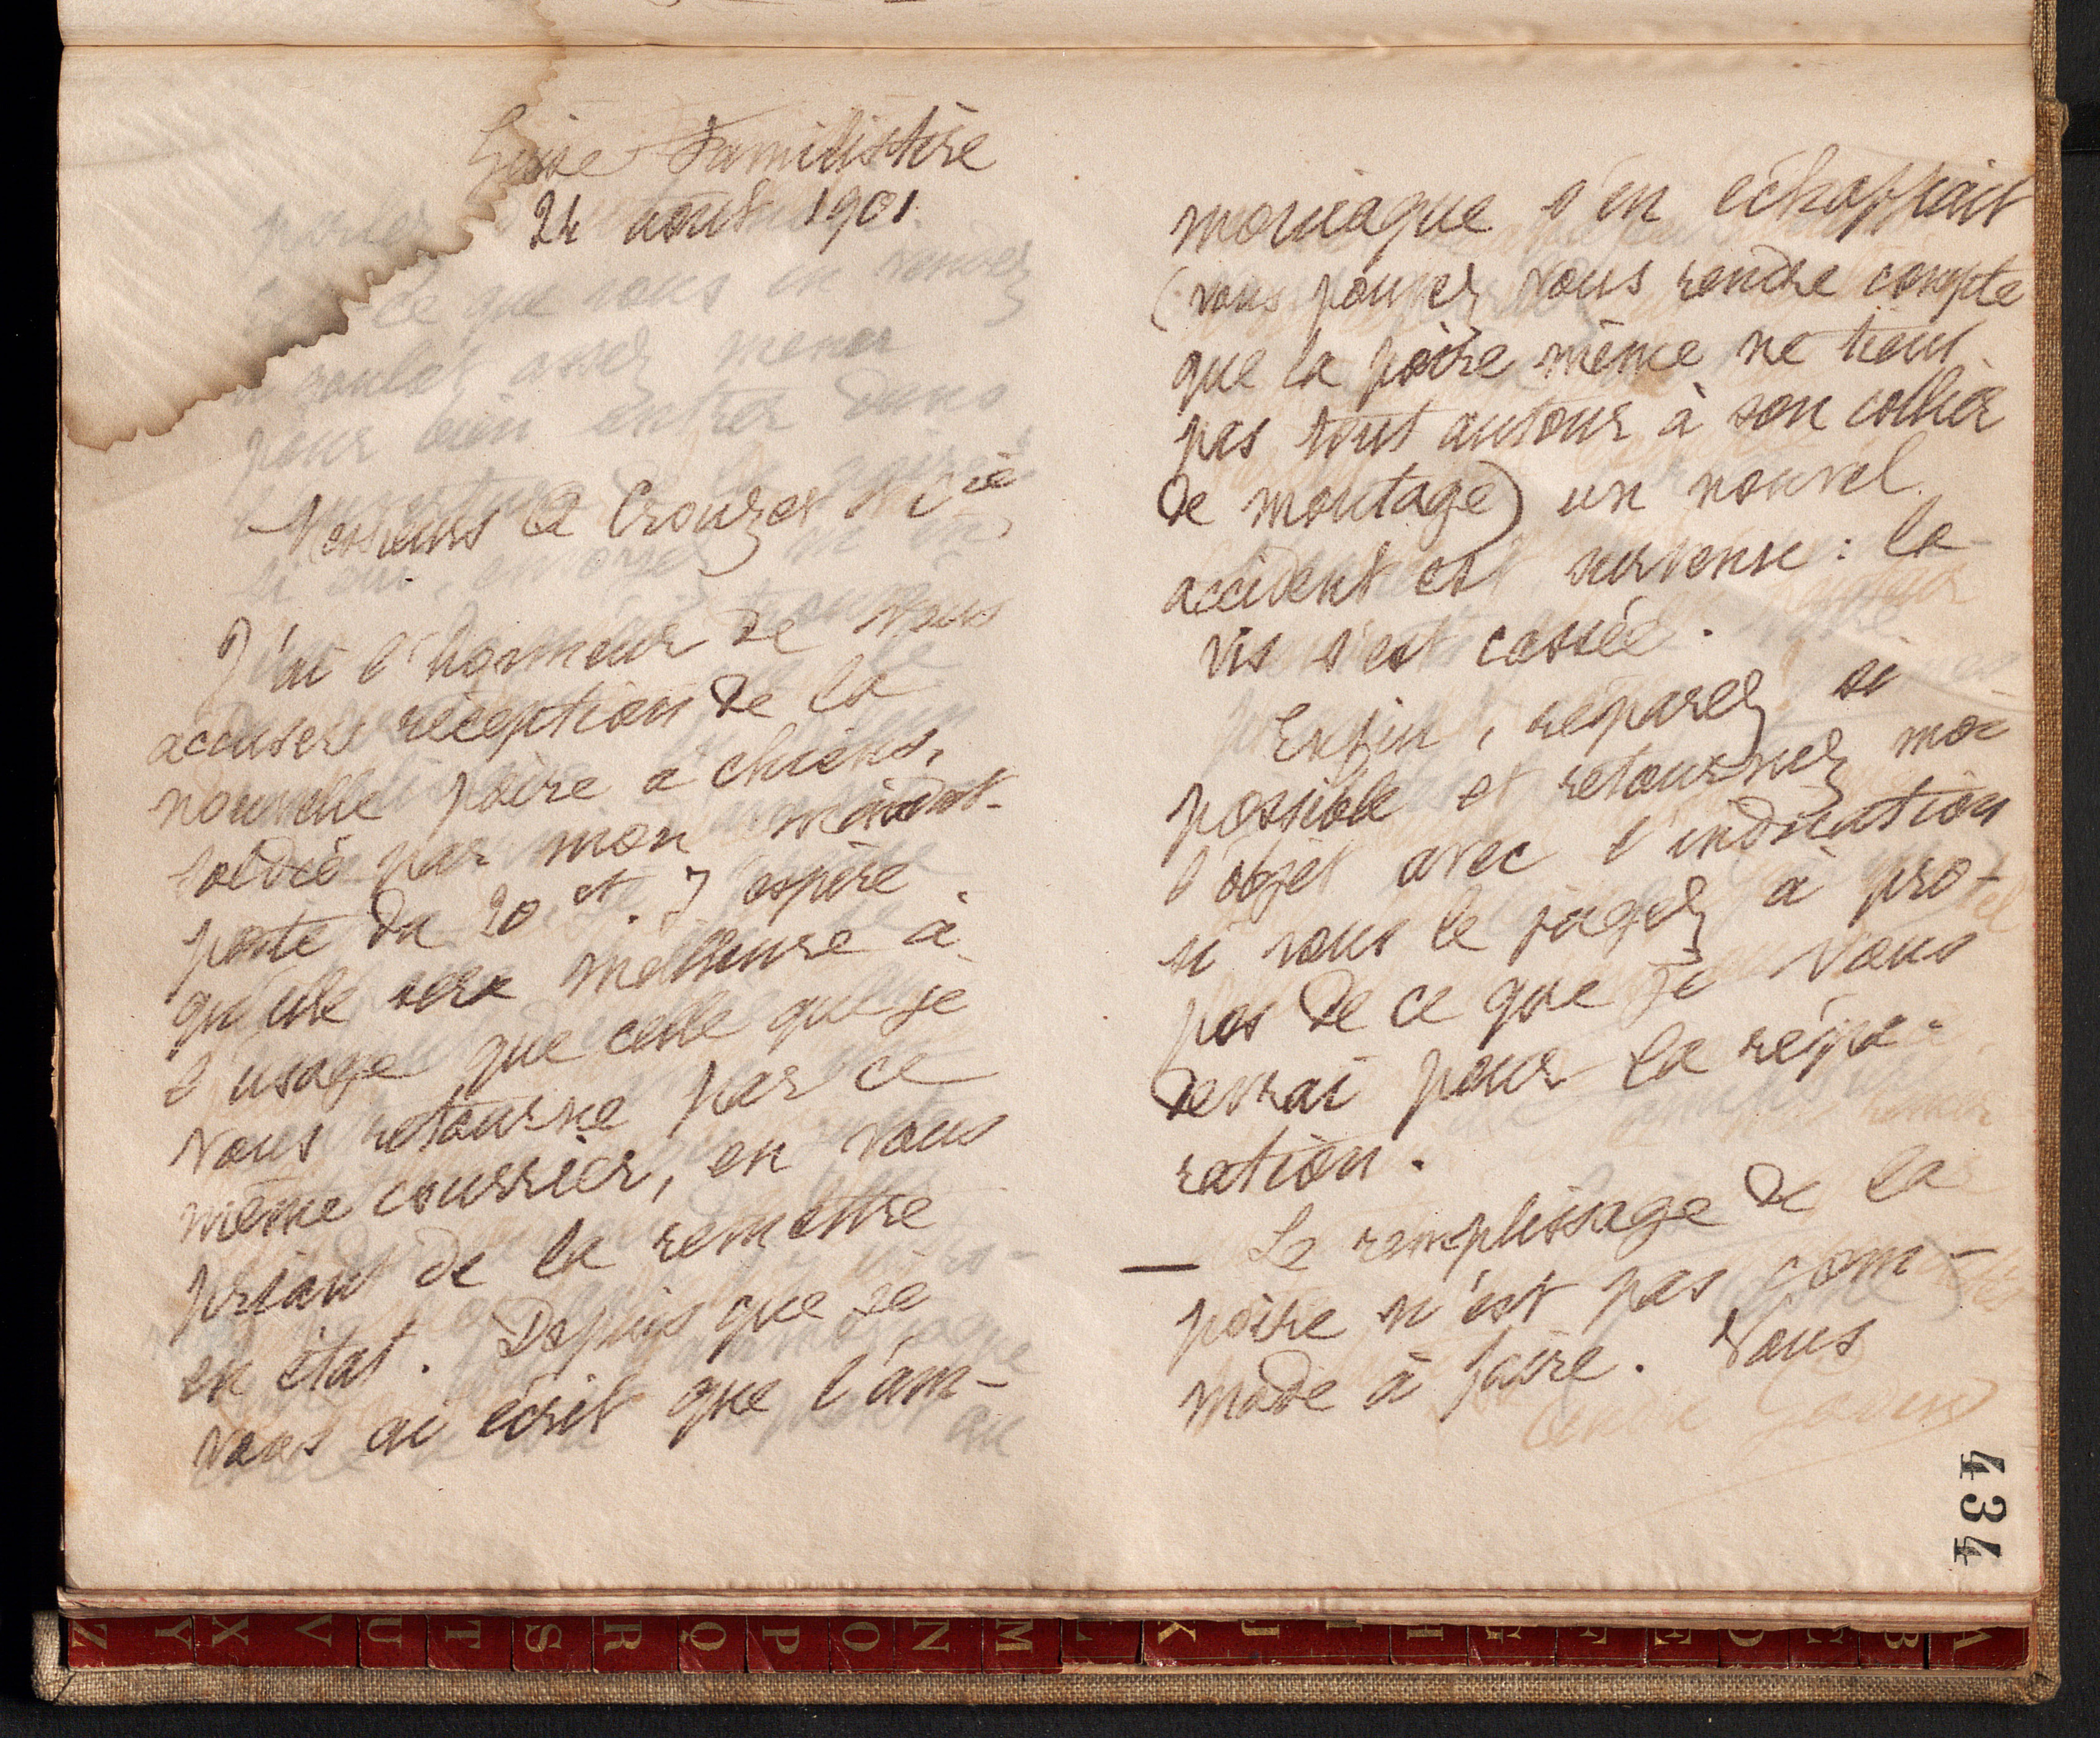 Guise Familistère
24 août 1901
Messieurs A Crouzet & Cie
J'ai l'honneur de vous
accuser réception de la
nouvelle poire à chiens,
soldée par mon mandat-
poste du 20 ct. J'espère
qu'elle sera meilleure à
l'usage que celle que je
vous retourne par ce
même courrier, en vous
priant de la remettre
en état. Depuis que je
vous ai écrit que l'am-
moniaque s'en échappait
(vous pouvez vous rendre compte
que la poire même ne tient
pas tout autour à son collier
de montage) un nouvel
accident est survenu : la
vis s'est cassée.
Enfin, réparez si
possible et retournez moi
l'objet avec l'indication
si vous le jugez à pro-
pos de ce que je vous
devrai pour la répa-
ration.
— Le remplissage de la
poire n'est pas com-
mode à faire. Vous
434
Z Y X V U T S R Q P O N M L K J I H G F E D C B A